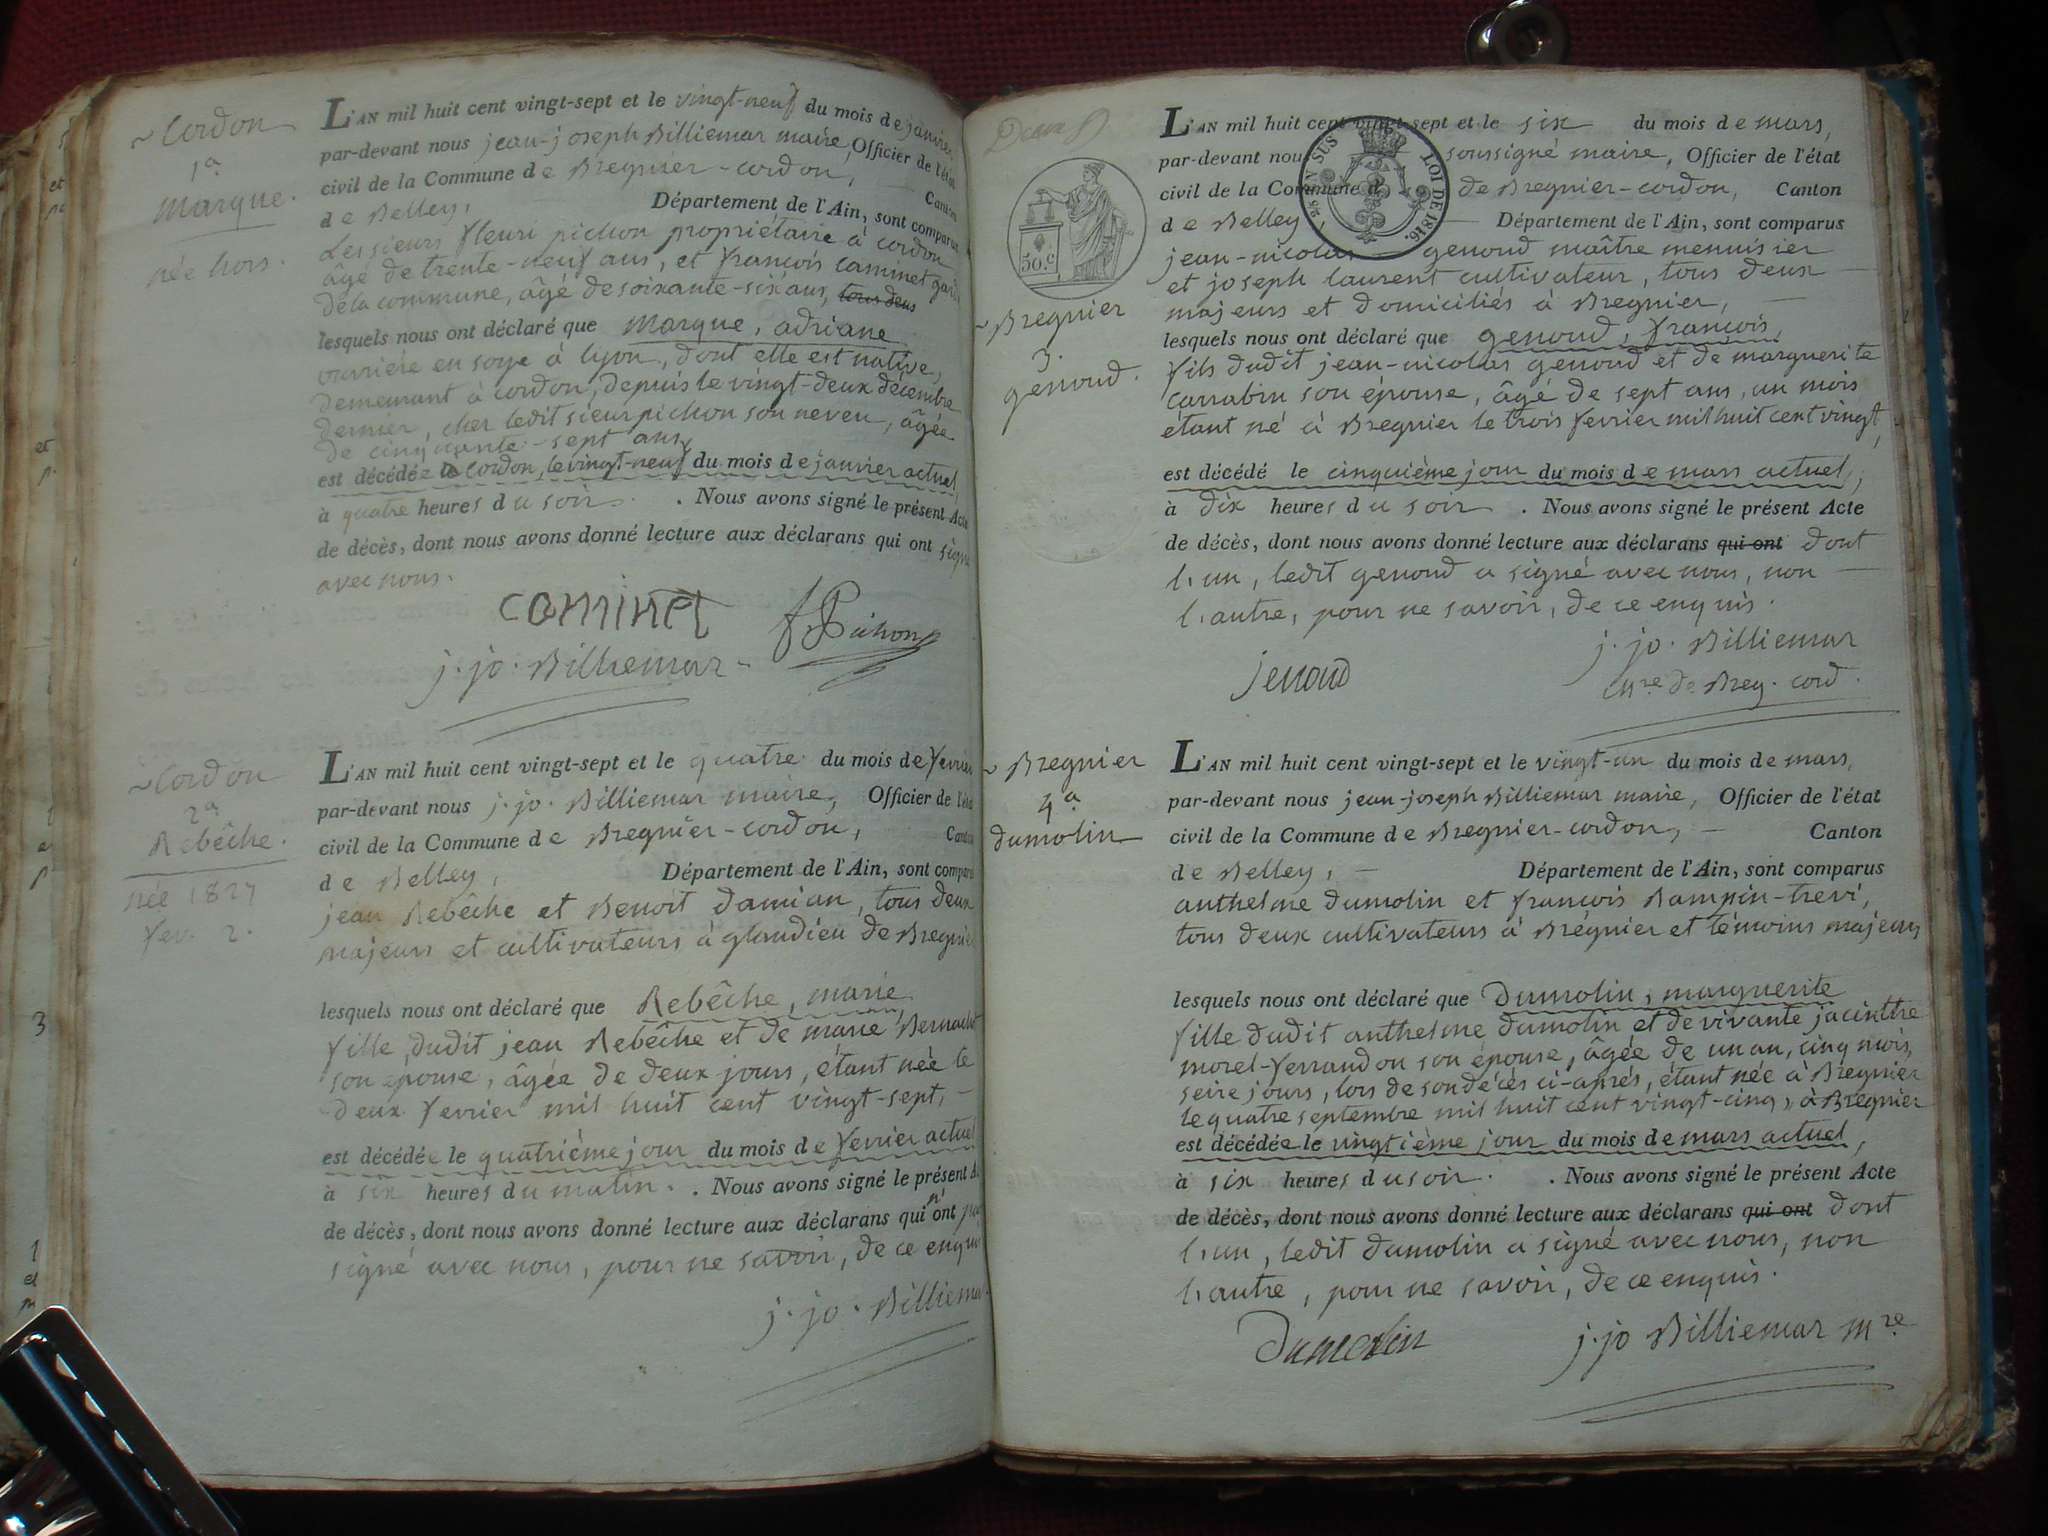 ~ Cordon
1.ª
Marque.
née hors.
L'AN mil huit cent vingt-sept et le vingt-neuf du mois de janvier
par-devant nous jean-joseph Billiemar maire, Officier de l'état
civil de la Commune de Bregnier-cordon, Canton
de Belley, Département de l'Ain, sont comparus
Les sieurs fleuri pichon propriétaire à cordon
âgé de trente-neuf ans, et françois caminet garde
de la commune, âgé de soixante-six ans, tous deus
lesquels nous ont déclaré que Marque, adriane
ouvrière en soye à lyon, dont elle est native,
demeurant à cordon, depuis le vingt-deux décembre
dernier, cher ledit sieur pichon son neveu, âgée
de cinquante-sept ans,
est décédée à cordon, le vingt-neuf du mois de janvier actuel,
à quatre heures du soir. . Nous avons signé le présent Acte
de décès, dont nous avons donné lecture aux déclarans qui ont signé
avec nous.
caminet
f Pichon
j. jo. Billiemar
~ Cordon
2.ª
Rebêche.
née 1827
fev. 2.
L'AN mil huit cent vingt-sept et le quatre du mois de fevrier
par-devant nous j. jo. Billiemar maire, Officier de l'état
civil de la Commune de Bregnier-cordon, Canton
de Belley, Département de l'Ain, sont comparus
jean Rebêche et Benoit Damian, tous deux
majeurs et cultivateurs à glandieu de Bregnier
lesquels nous ont déclaré que Rebêche, marie
fille dudit jean Rebêche et de marie
son epouse, âgée de deux jours, étant née le
deux fevrier mil huit cent vingt-sept,
est décédée le quatrième jour du mois de fevrier actuel
à six heures du matin. . Nous avons signé le présent A
de décès, dont nous avons donné lecture aux déclarans qui n'ont pas
signé avec nous, pour ne savoir, de ce enquis
j. jo. Billiemar
50.c
LOI DE 1816.
EN SUS
~ Bregnier
3.
genoud.
L'AN mil huit cent vingt-sept et le six du mois de mars,
par-devant nous soussigné maire, Officier de l'état
civil de la Commune d de Bregnier-cordon, Canton
de Belley, Département de l'Ain, sont comparus
jean-nicolas genoud maître menuisier
et joseph laurent cultivateur, tous deux
majeurs et domiciliés à Bregnier,
lesquels nous ont déclaré que genoud, françois,
fils dudit jean-nicolas genoud et de marguerite
carrabin son épouse, âgé de sept ans, un mois
étant né à Bregnier le trois fevrier mil huit cent vingt,
est décédé le cinquième jour du mois de mars actuel,
à dix heures du soir . Nous avons signé le présent Acte
de décès, dont nous avons donné lecture aux déclarans qui ont dont
l'un, ledit genoud a signé avec nous, non
l'autre, pour ne savoir, de ce enquis.
j. jo. Billiemar
jenoud
mre de Breg. cord.
~ Bregnier
4.ª
dumolin
L'AN mil huit cent vingt-sept et le vingt-un du mois de mars,
par-devant nous jean-joseph Billiemar maire, Officier de l'état
civil de la Commune de Bregnier-cordon, Canton
de Belley, Département de l'Ain, sont comparus
anthelme dumolin et françois Rampin-trevi,
tous deux cultivateurs à Brégnier et témoins majeurs
lesquels nous ont déclaré que Dumolin, marguerite
fille dudit anthelme dumolin et de vivante jacinthe
morel-ferrandou son épouse, âgée de un an, cinq mois,
seire jours, lors de son décès ci-après, étant née à Bregnier
le quatre septembre mil huit cent vingt-cinq, à Bregnier
est décédée le vingtième jour du mois de mars actuel,
à six heures du soir. . Nous avons signé le présent Acte
de décès, dont nous avons donné lecture aux déclarans qui ont dont
l'un, ledit dumolin a signé avec nous, non
l'autre, pour ne savoir, de ce enquis.
Dumolin
j. jo Billiemar mre